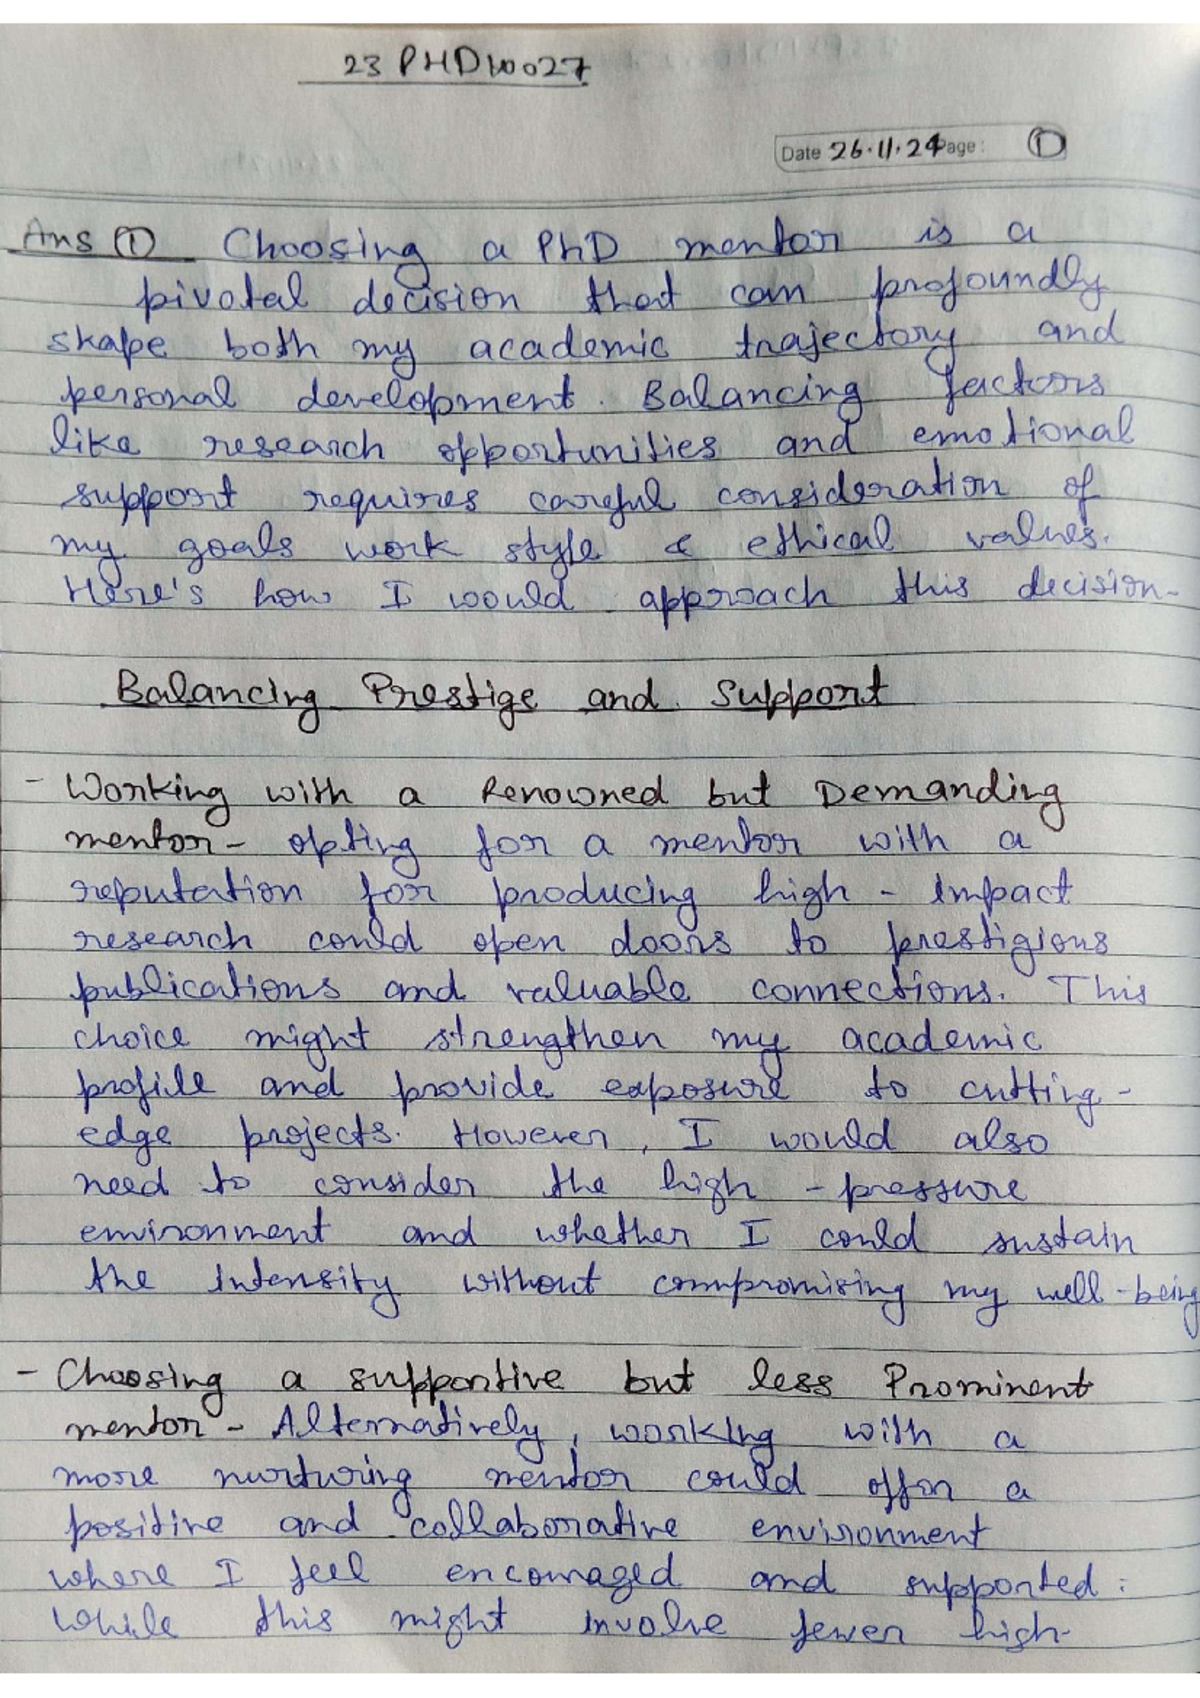 23PHD10027
Date 26.11.24 Page: ①
Ans ① Choosing a PhD mentor is a
pivotal decision that can profoundly
shape both my academic trajectory and
personal development. Balancing factors
like research opportunities and emotional
support requires careful consideration of
my goals work style & ethical values.
Here's how I would approach this decision-
Balancing Prestige and Support
- Working with a Renowned but Demanding
mentor- opting for a mentor with a
reputation for producing high - impact
research could open doors to prestigious
publications and valuable connections. This
choice might strengthen my academic
profile and provide exposure to cutting-
edge projects. However, I would also
need to consider the high - pressure
environment and whether I could sustain
the intensity without compromising my well-being
- Choosing a supportive but less Prominent
mentor - Alternatively, working with a
more nurturing mentor could offer a
positive and collaborative environment
where I feel encouraged and supported.
While this might involve fewer high-